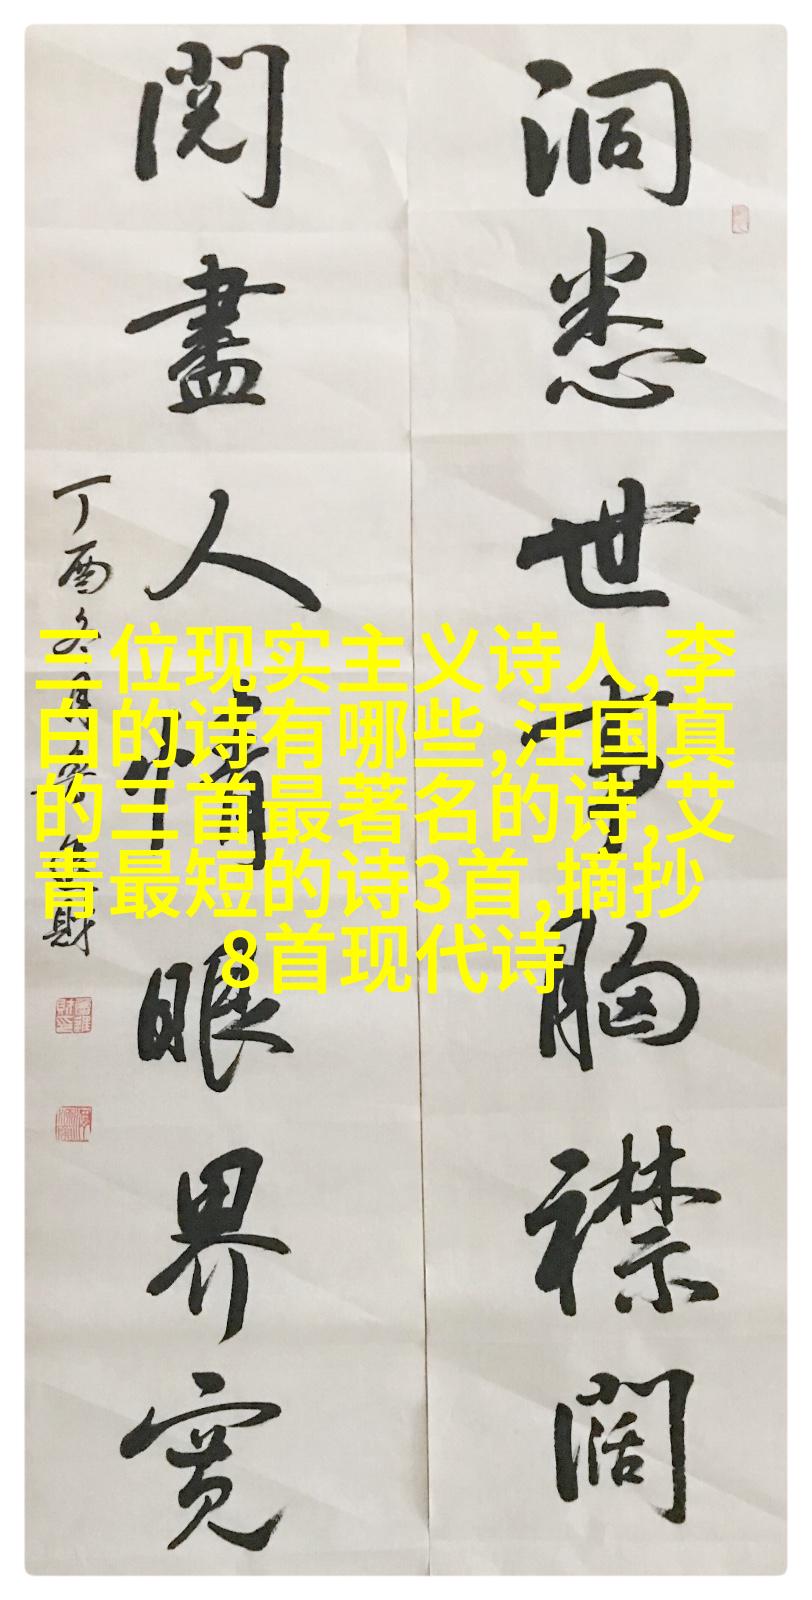 洞悉世事胸襟阔
阅盡人情眼界宽
丁酉冬月
三位现实主义诗人,李
白的诗有哪些,汪国真
的三首最著名的诗,艾
青最短的诗3首,摘抄
8首现代诗